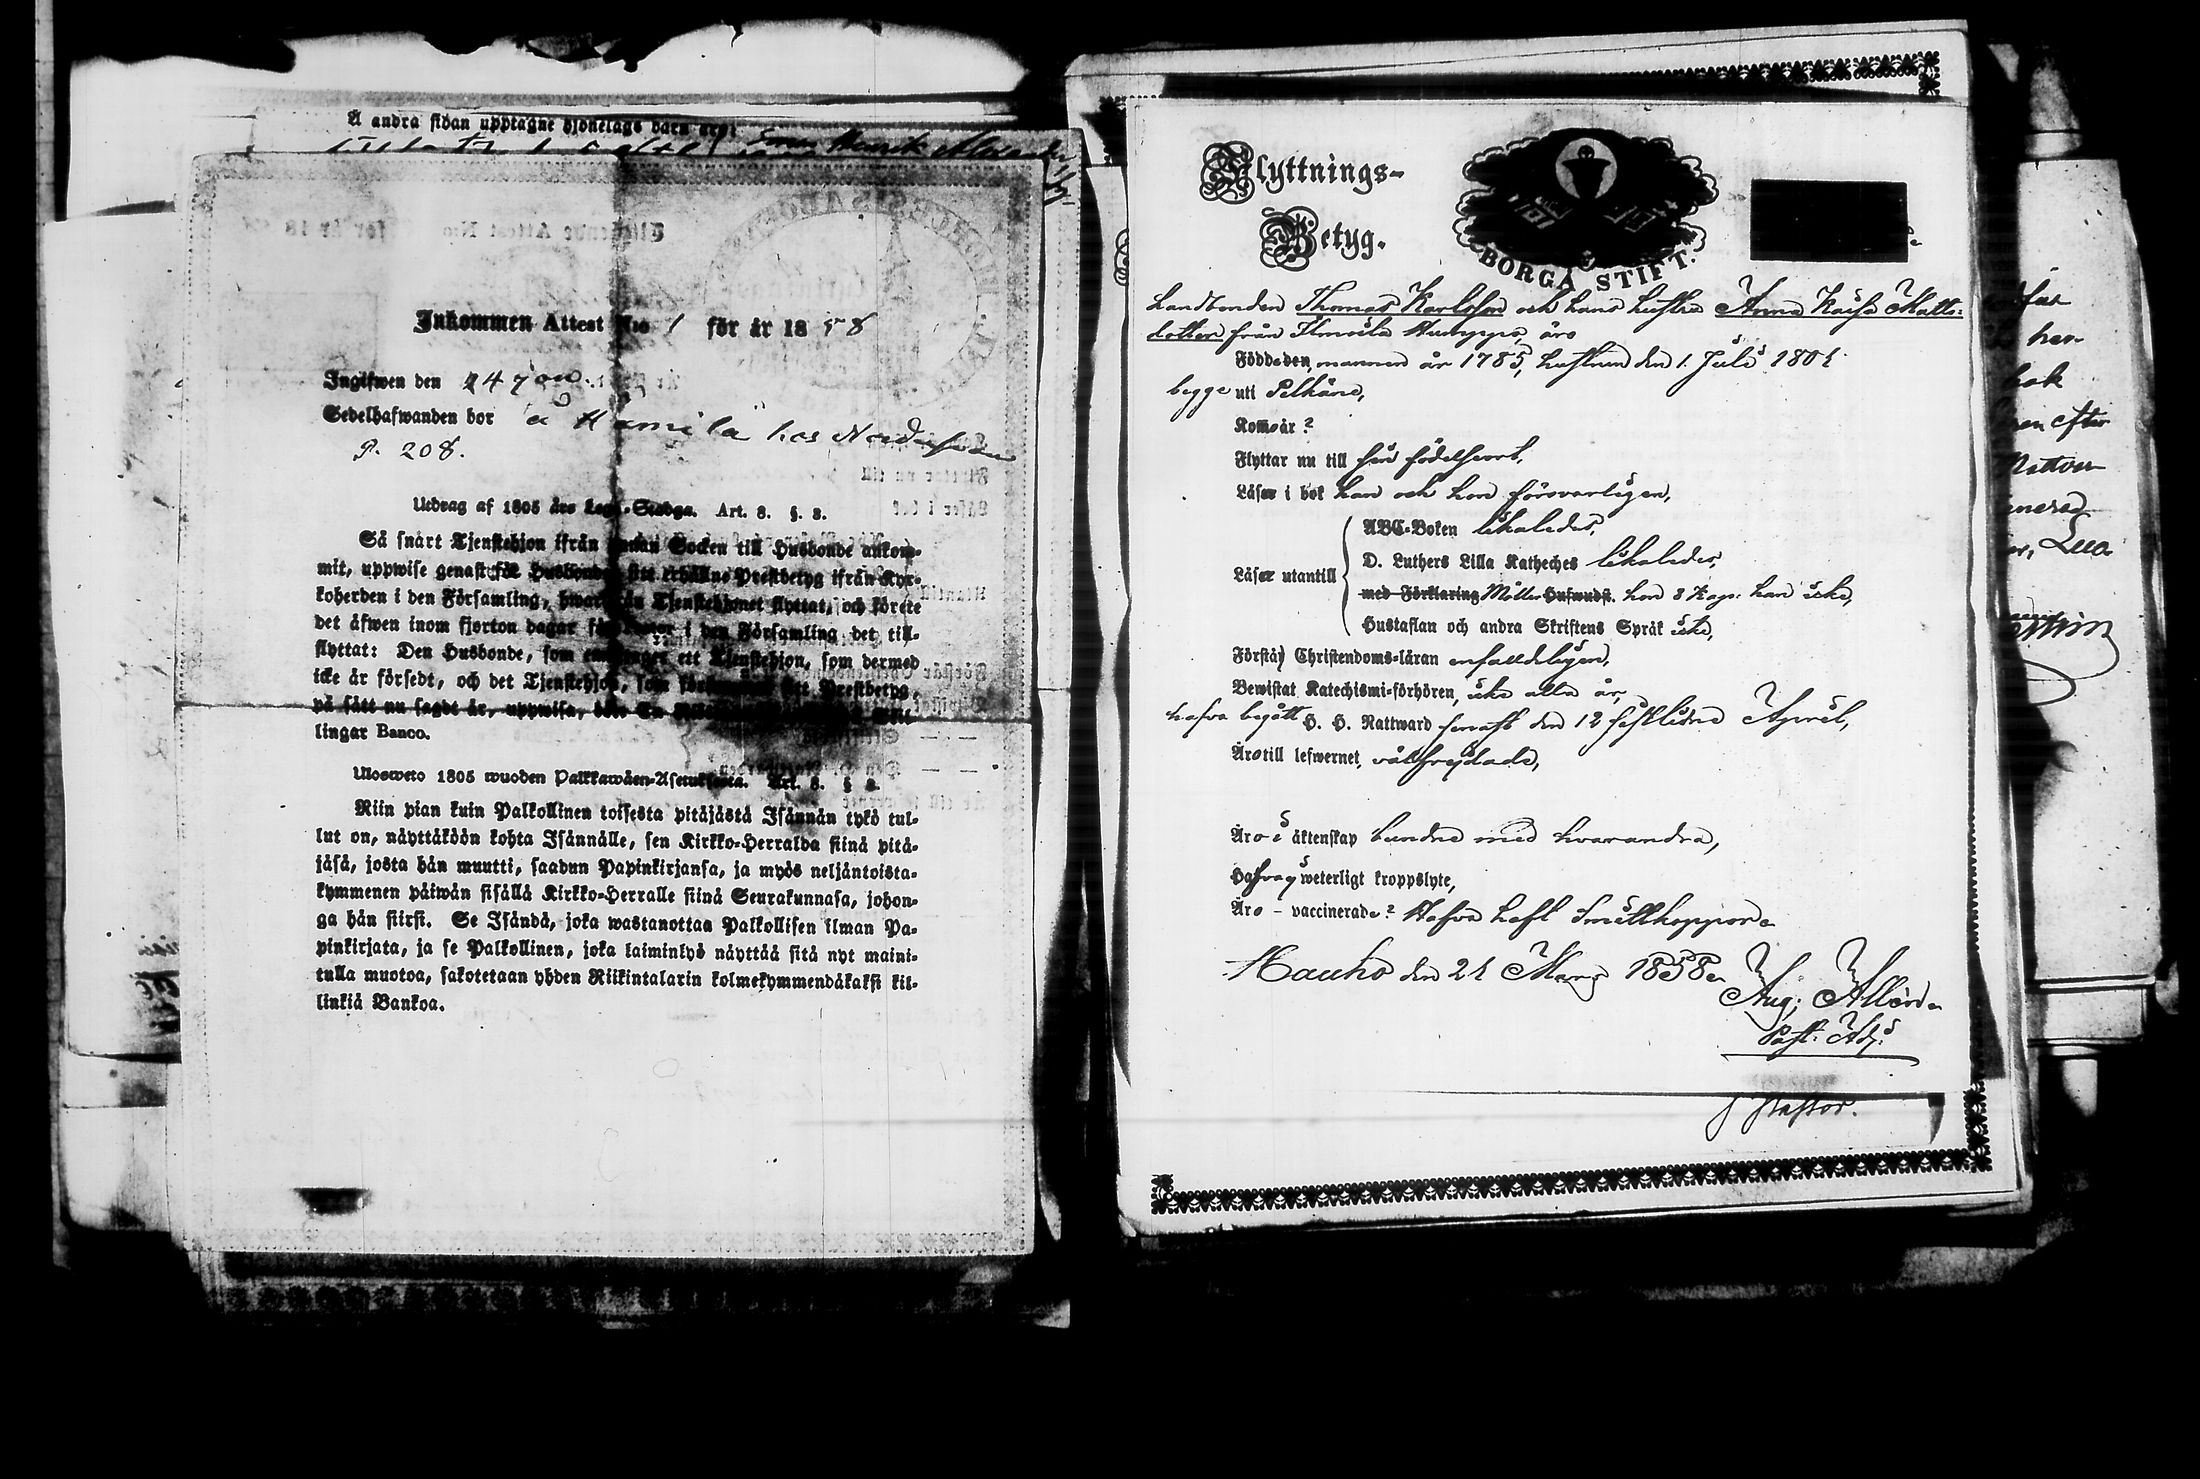 Å andra sidan upptagne hjonelags barn äro:
Inkommen Attest N:o 1 för år 1858
Ingifwen den 24
Sedelhafwanden bor å hos
P. 208.
Utdrag af 1805 års Lego-Stadga. Art. 8. §. 2.
Så snart Tjenstehjon ifrån annan Socken till Husbonde ankom-
mit, uppwise genast för Husbonden sitt erhållne Prestbetyg ifrån Kyr-
koherden i den Församling, hwarifrån Tjenstehjonet flyttat, och förete
det äfwen inom fjorton dagar för Pastor i den Församling det till-
flyttat: Den Husbonde, som emottager ett Tjenstehjon, som dermed
icke är försedt, och det Tjenstehjon, som ett Prestbetyg,
på sätt nu sagdt är, uppwisa, böte En
lingar Banco.
Ulosweto 1805 wuoden Palkkawäen-Asetuksesta. Art. 8. § 2.
Niin pian kuin Palkollinen toisesta pitäjästä Isännän tykö tul-
lut on, näyttäköön kohta Isännälle, sen Kirkko-Herralda siinä pitä-
jäsä, josta hän muutti, saadun Papinkirjansa, ja myös neljäntoista-
kymmenen päiwän sisällä Kirkko-Herralle siinä Seurakunnasa, johon-
ga hän siirsi. Se Isändä, joka wastanottaa Palkollisen ilman Pa-
pinkirjata, ja se Palkollinen, joka laiminlyö näyttää sitä nyt maini-
tulla muotoa, sakotetaan yhden Riikintalarin kolmekymmendäkaksi kil-
linkiä Bankoa.
Flyttnings-
Betyg.
BORGÅ STIFT.
Landbonden Thomas Karlsson och hans hustru Anna Kaisa Matts-
dotter från Ilmoila Humppi, äro
Födde den, mannen år 1785, hustrun den 1. Juli 1801
begge uti Pelkäne,
Kom år?
Flyttar nu till sin födelseort,
Läser i bok han och hon försvarligen,
Läser utantill
ABC-Boken likaledes,
D. Luthers Lilla Katheches likaledes,
med Förklaring Möllers Hufwudst. hon 8 Kap: han icke,
Hustaflan och andra Skriftens Språk icke,
Förstå Christendoms-läran enfaldeligen,
Bewistat Katechismi-förhören, icke alla år,
hafva begått H. H. Nattward senast den 12 sistlidne April,
Äro till lefwernet, välfrejdade,
Äro i äktenskap bundne med hvarandra,
Hafva ej weterligt kroppslyte,
Äro - vaccinerade? Hafva haft Smittkopporne
Hauho den 21 Maij 1858.
Aug: Allén
Past: Adj:
Pastor.